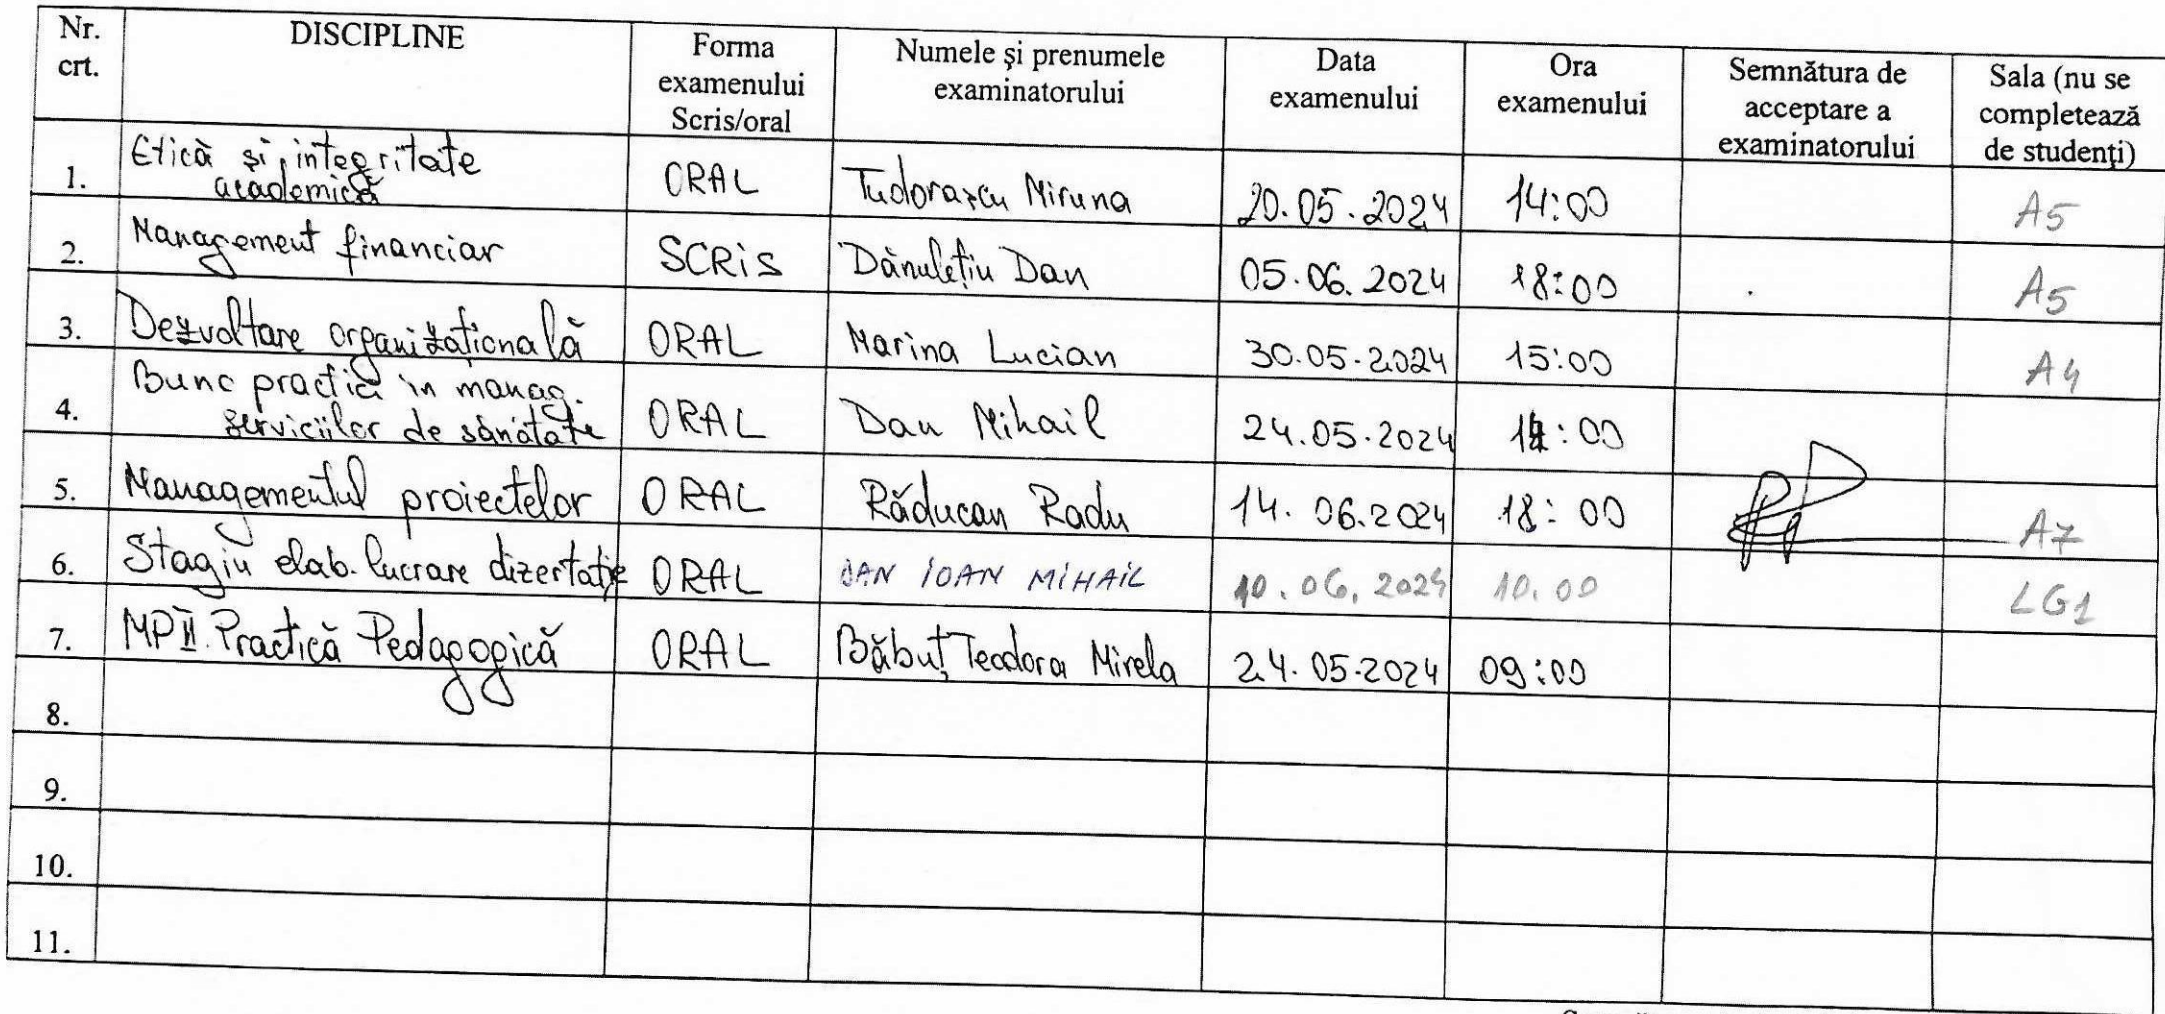 Nr. crt. DISCIPLINE Forma examenului Scris/oral Numele și prenumele examinatorului Data examenului Ora examenului Semnătura de acceptare a examinatorului Sala (nu se completează de studenți)
1. Etică și integritate academică ORAL Tudorașcu Miruna 20.05.2024 14:00 A5
2. Management financiar SCRIS Dănulețiu Dan 05.06.2024 18:00 A5
3. Dezvoltare organizațională ORAL Marina Lucian 30.05.2024 15:00 A4
4. Bune practici in manag. serviciilor de sănătate ORAL Dan Mihail 24.05.2024
5. Managementul proiectelor ORAL Răducan Radu 14.06.2024 18:00 A7
6. Stagiu elab. lucrare dizertație ORAL DAN IOAN MIHAIL 10.06.2024 10.00 LG1
7. MPII Practică Pedagogică ORAL Băbuț Teodora Mirela 24.05.2024 09:00
8.
9.
10.
11.